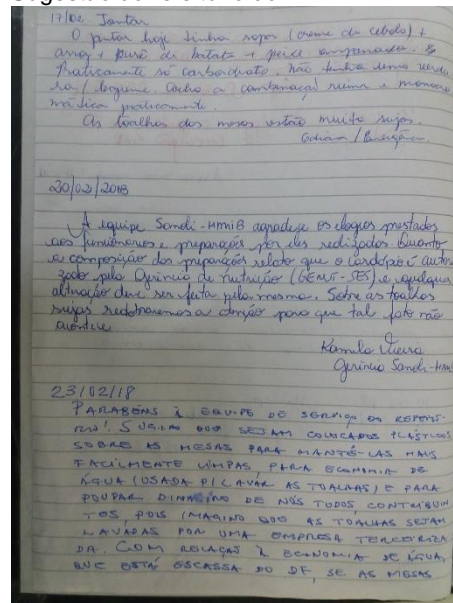 17/02 Jantar
O jantar hoje tinha sopa (creme de cebola) +
arroz + purê de batata + peixe empanado. É
Praticamente só carboidrato. Não tinha uma verdu
ra/legume. Acho a combinação ruim e monocro
mática praticamente.
As toalhas das mesas estão muito sujas.
20/02/2018
A equipe Sandi-HMIB agradece os elogios prestados
aos funcionários e preparações por eles realizados. Quanto
a composição das preparações relato que o cardápio é auto
zado pela Gerência de Nutrição (GENUT-SES) e qualquer
alteração deve ser feita pela mesma. Sobre as toalhas
sujas redobraremos a atenção para que tal fato não
Kamila Vieira
Gerência Sandi-HMIB
23/02/18
PARABÉNS À EQUIPE DE SERVIÇO DO REFEITÓ-
RIO! SUGIRO QUE SEJAM COLOCADOS PLÁSTICOS
SOBRE AS MESAS PARA MANTÊ-LAS MAIS
FACILMENTE LIMPAS PARA ECONOMIA DE
ÁGUA (USADA P/ LAVAR AS TOALHAS) E PARA
POUPAR DINHEIRO DE NÓS TODOS, CONTRIBUIN
TES, POIS IMAGINO QUE AS TOALHAS SEJAM
LAVADAS POR UMA EMPRESA TERCEIRIZA
DA. COM RELAÇÃO À ECONOMIA DE ÁGUA,
QUE ESTÁ ESCASSA DO DF, SE AS MESAS